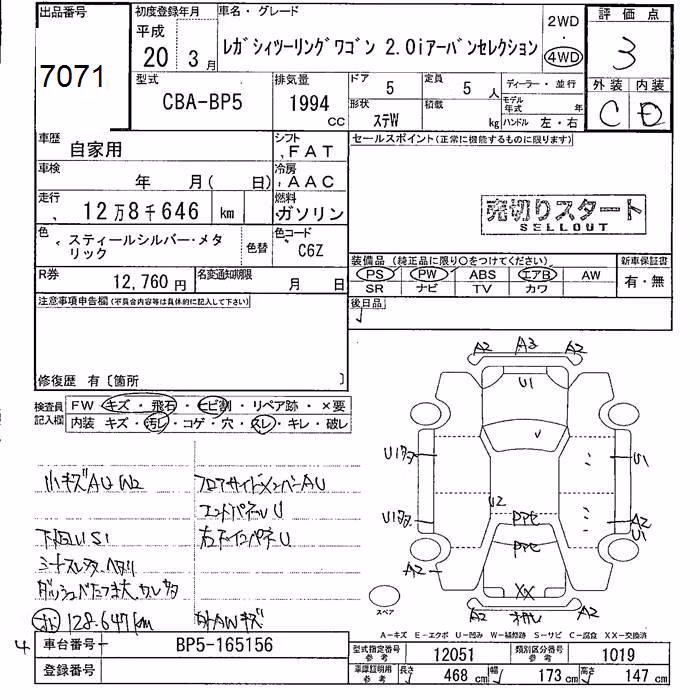 出品番号
7071
初度登録年月
平成
20年 3月
車名・グレード
レガシィツーリングワゴン 2.0iアーバンセレクション
2WD
・
4WD
評価点
3
外装 内装
C D
型式
CBA-BP5
排気量
1994
CC
ドア
5
定員
5人
形状
ステW
積載
kg
ディーラー・並行
モデル年式 年
ハンドル 左・右
車歴
自家用
シフト
FAT
セールスポイント(正常に機能するものに限ります)
車検
年 月( 日)
冷房
AAC
走行
12万8千646 km
燃料
ガソリン
売切りスタート
SELLOUT
色
スティールシルバー・メタ
リック
色替
色コード
C6Z
装備品 (純正品に限り○をつけてください)
新車保証書
PS PW ABS エアB AW
SR ナビ TV カワ
有・無
R券
12,760円
名変通知期限
月 日
後日品
注意事項申告欄(不具合内容等は具体的に記入して下さい)
修復歴 有〔箇所 〕
検査員
記入欄
FW キズ・飛石・ヒビ割・リペア跡・×要
内装 キズ・汚レ・コゲ・穴・スレ・キレ・破レ
小キズAU W2
フロアサイドメンバーAU
エンドパネルU
下回りUS1
右インパネU
128.647km
外AWキズ
A2 A3 A2
U1
U1
U1
U2
A2
U1
A2
XX
A2 A2
スペア
A-キズ E-エクボ U-凹み W-補修跡 S-サビ C-腐食 XX-交換済
4
車台番号
BP5-165156
登録番号
型式指定番号
参考
12051
類別区分番号
参考
1019
車庫証明用
参考
長さ
468 cm
幅
173 cm
高さ
147 cm